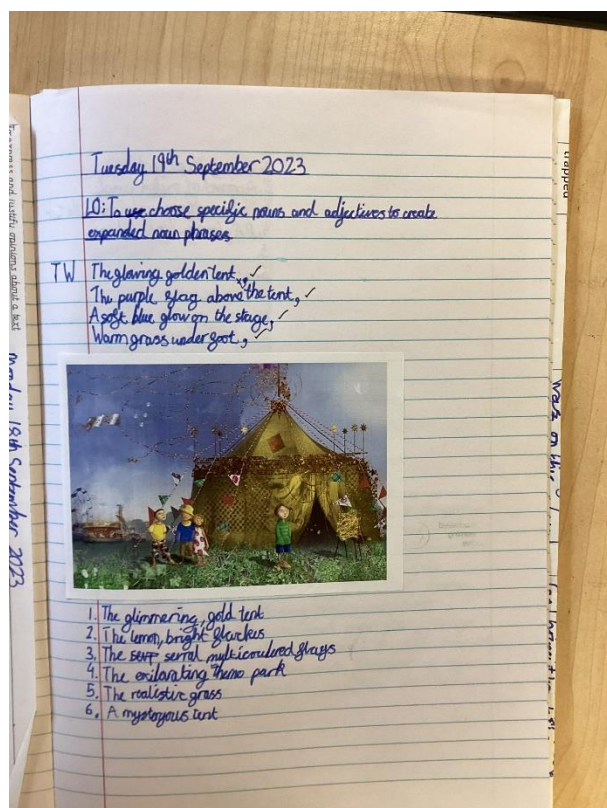 Tuesday 19th September 2023
LO: To use choose specific nouns and adjectives to create
expanded noun phrases.
TW The glowing golden tent,
The purple flag above the tent,
A soft blue glow on the stage,
Warm grass underfoot,
1. The glimmering, gold tent
2. The lemon, bright
3. The serral multicouloured flags
4. The exilarating themo park
5. The realistic grass
6. A mystoyous tent
to express and justify opinions about a text
Monday 18th September 2023
trapped